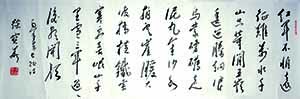 红军不怕远
征难万水千
山只等闲五岭
逶迤腾细浪
乌蒙磅礴走
泥丸金沙水
拍云崖暖大
渡桥横铁索
寒更喜岷山千
里雪三军过
后尽开颜